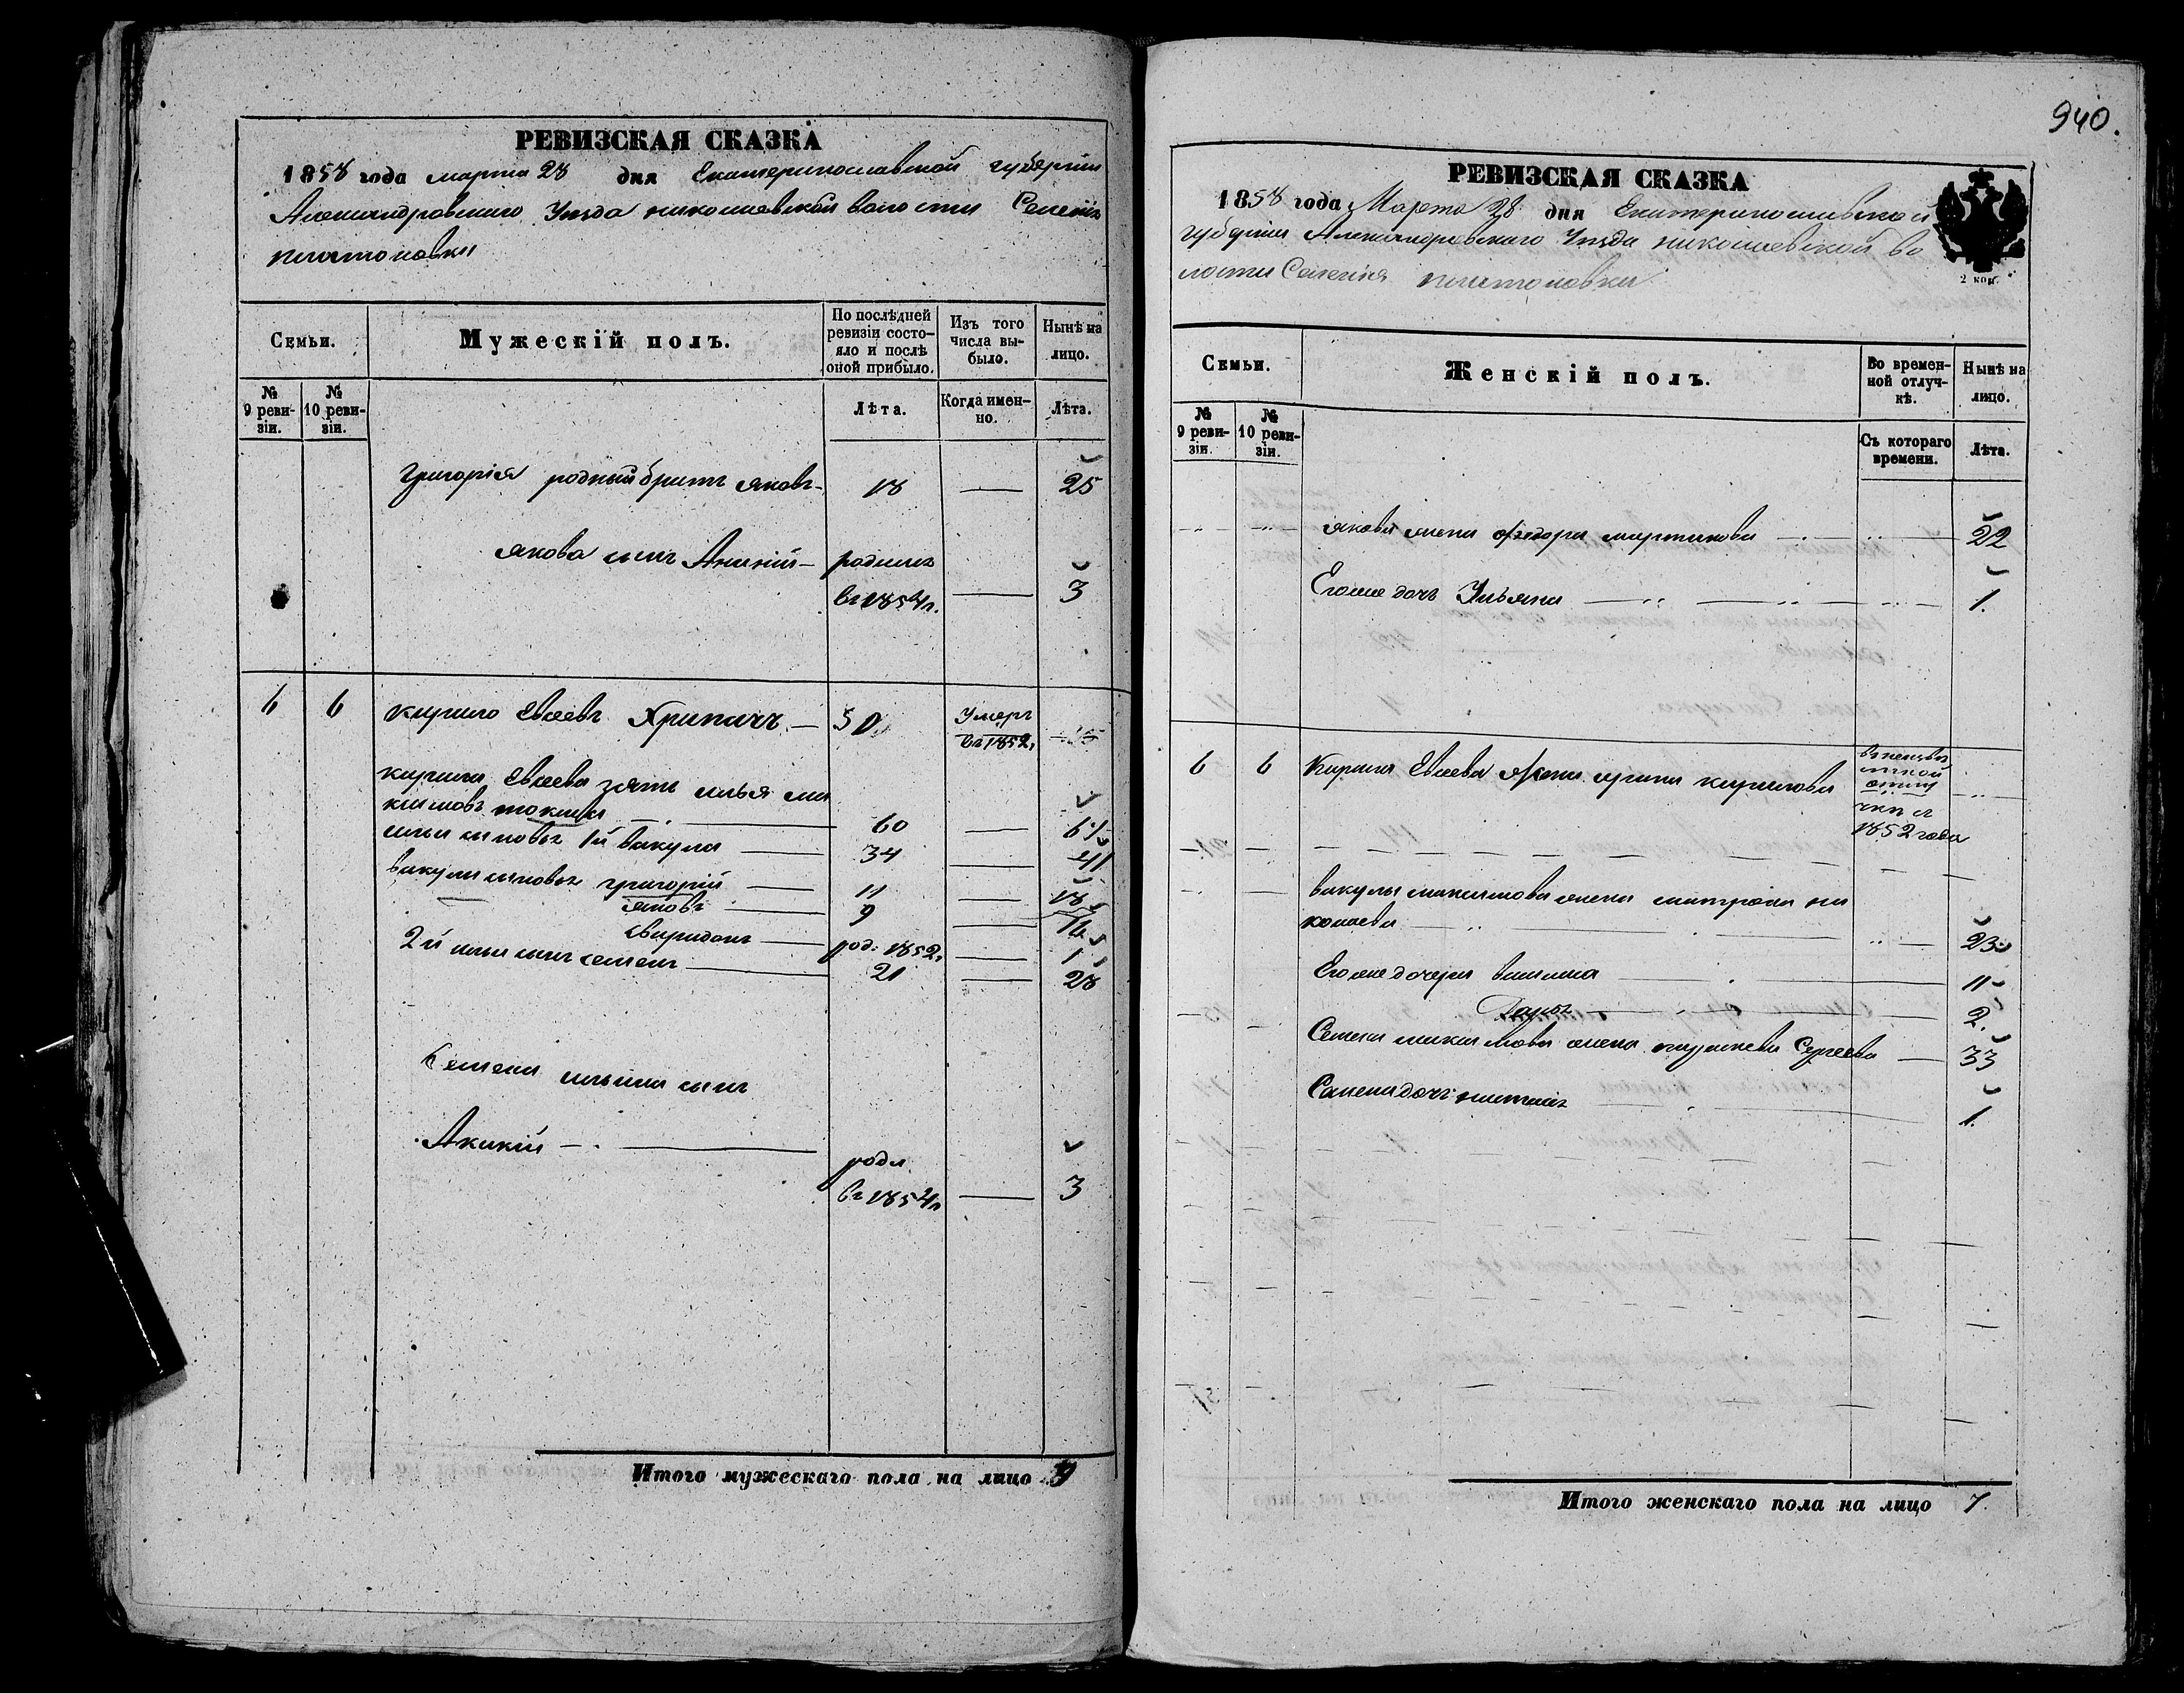 РЕВИЗСКАЯ СКАЗКА
1858 года марта 28 дня Екатеринославской губернии
Александровского Уезда волости Селения
Платоновки
Семьи.
Мужескій полъ.
По послѣдней ревизіи состо-
яло и послѣ
оной прибыло.
Изъ того
числа вы-
было.
Нынѣ на
лицо.
№
9 реви-
зіи.
№
10 реви-
зіи.
Лѣта.
Когда имен-
но.
Лѣта.
Григорія родный братъ Яковъ 18 — 25
Якова сынъ Ананій — родился
въ 1854 г. — 3
6 6 Кирило Евсеевъ 50 Умеръ
въ 1852
Кирила Евсеева зять Илья Ма
ксимовъ 60 — 67
Ильи сыновья 1й Вакула — 34 — 41
Вакулы сыновья Григорій — 11 — 18
Яковъ — 9 — 16
Свиридонъ — род: 1852
2й Ильи сынъ Семенъ — 21 — 28
Семена Ильина сынъ
родил
въ 1854 — 3
Итого мужескаго пола на лицо 9
940.
РЕВИЗСКАЯ СКАЗКА
1858 года Марта 28 дня Екатеринославской
губернии Александровского Уезда во
лости Селения Платоновки
2 коп.
Семьи.
Женскій полъ.
Во времен-
ной отлуч-
кѣ.
Нынѣ на
лицо.
№
9 реви-
зіи.
№
10 реви-
зіи.
Съ котораго
времени.
Лѣта.
Якова жена Федора Мартинова — 22
Его же дочь Ульяна — 1
6 6 Кирила Евсеева жена Ирина Кирилова
1852 года
Вакулы Максимова жена Матрона Ни
колаева — 23
Его же дочери — 11
2.
Семена Максимова жена Сергеева — 33
Семена дочь — 1.
Итого женскаго пола на лицо 7.